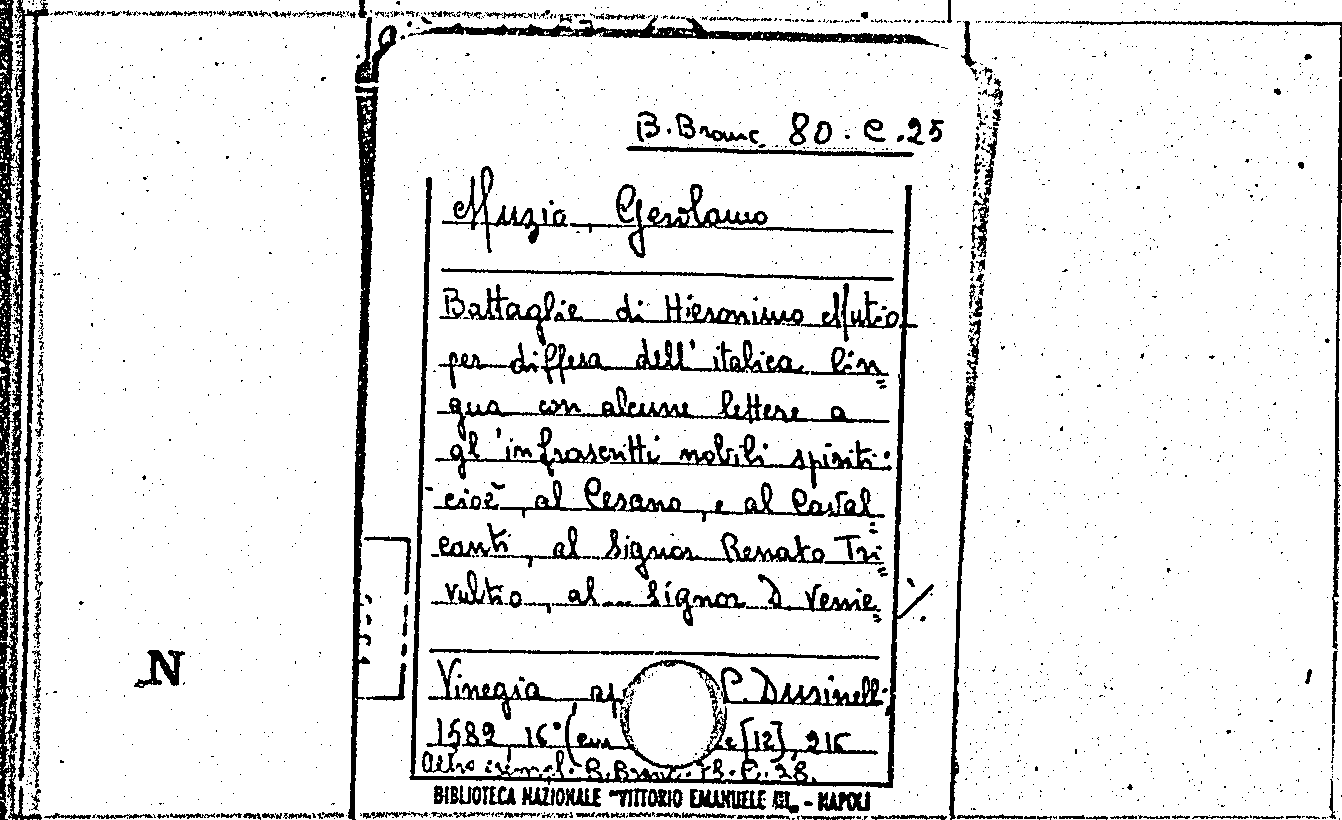 B. Branc. 80. C. 25
Muzio, Gerolamo
Battaglie di Hieronimo Mutio
per diffesa dell' italica lin=
gua con alcune lettere a
gl'infrascritti nobili spiriti:
cioè, al Cesano, e al Caval=
canti, al Signor Renato Tri=
vultio, al... Signor D. Venie=
Vinegia ap P. Dusinelli,
1582, 16° (
[12], 216
Altro esempl. B. Branc. C. 28.
N
BIBLIOTECA NAZIONALE "VITTORIO EMANUELE III" - NAPOLI